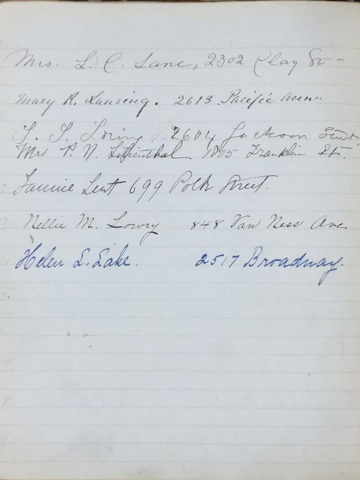 Mrs. L. C. Lane, 2302 Clay St-
Mary R. Lansing. 2613 Pacific Aven.
Loring 2604 Jackson Street,
Mrs P. N. Lilienthal Franklin St.
Fannie Lent 699 Polk Street.
Nellie M. Lowry 848 Van Ness Ave
Helen L. Lake. 2517 Broadway.